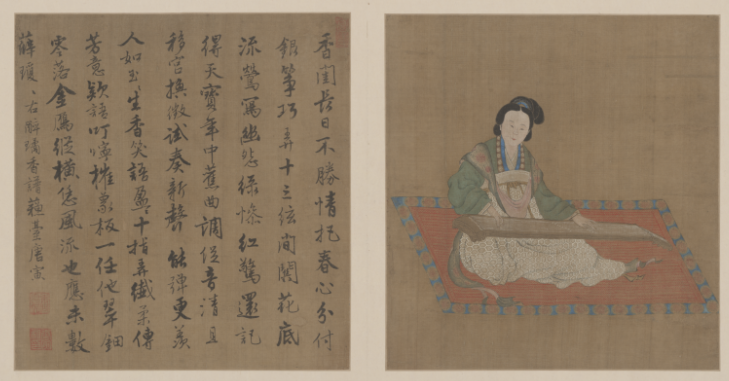 香閨長日不勝情把春心分付
銀箏巧弄十三絃間關花底
流鶯罵幽怨綠慘紅驚還記
得天寶年中舊曲調促音清且
移宮換徵試奏新聲能彈更羨
人如玉生香笑語盈〻十指弄纖柔傳
芳意欵語叮嚀摧票板一任他翠鈿
零落金鴈縱橫恁風流也應未數
薛瓊〻右醉殘香譜蘇臺唐寅